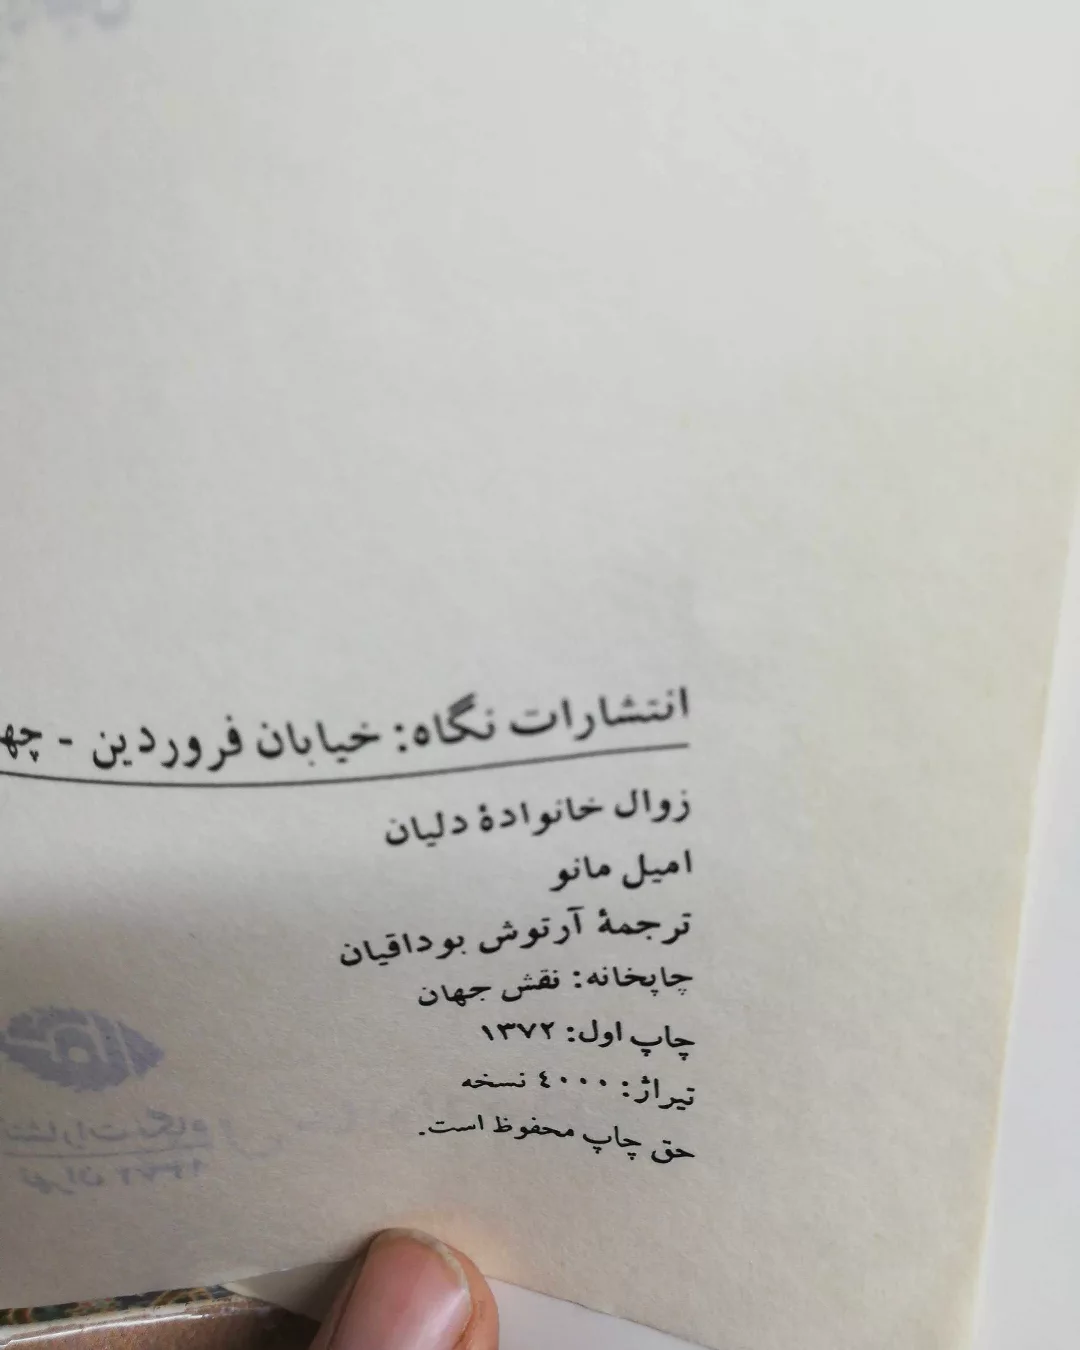 انتشارات نگاه: خیابان فروردین -
زوال خانوادهٔ دلیان
امیل مانو
ترجمهٔ آرتوش بوداقیان
چاپخانه: نقش جهان
چاپ اول: ۱۳۷۲
تیراژ: ۴۰۰۰ نسخه
حق چاپ محفوظ است.